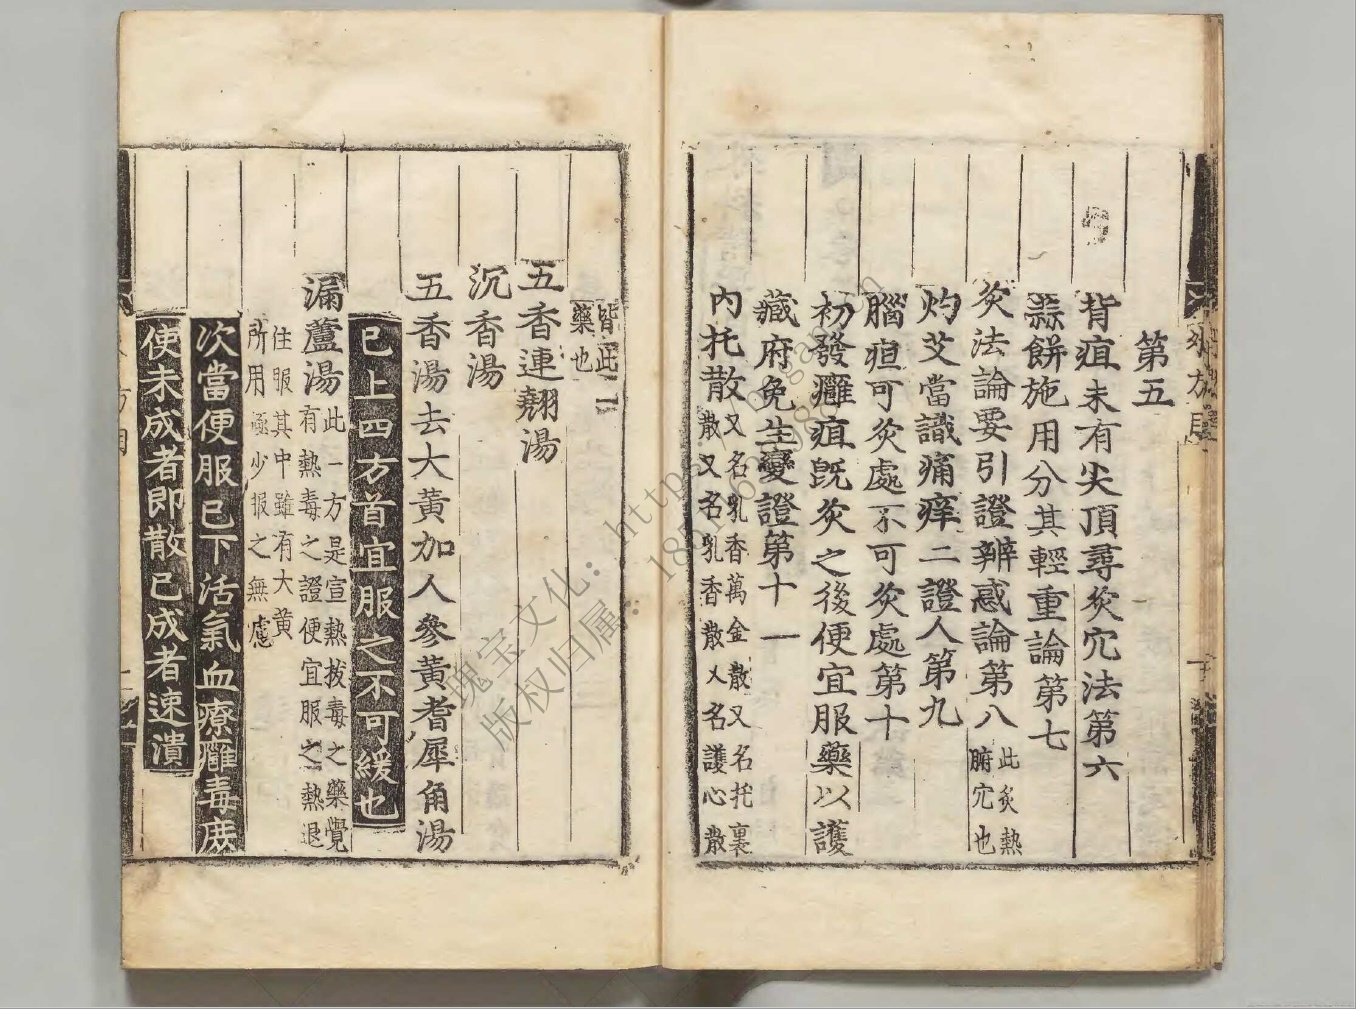 第五
背疽未有尖頂尋灸穴法第六
蒜餅施用分其輕重論第七
灸法論要引證辨惑論第八此灸熱
腑穴也
灼艾當識痛痒二證人第九
腦疽可灸處不可灸處第十
初發癰疽旣灸之後便宜服藥以護
藏府免生變證第十一
內托散又名乳香萬金散又名托裏
散又名乳香散又名護心散
皆此
藥也
五香連翹湯
沉香湯
五香湯去大黃加人參黃耆犀角湯
已上四方首宜服之不可緩也
漏蘆湯此一方是宣熱拔毒之藥覺
有熱毒之證便宜服之熱退
住服其中雖有大黃
所用極少服之無慮
次當便服已下活氣血療癰毒庶
使未成者即散已成者速潰
瑰宝文化：http
版权归属：